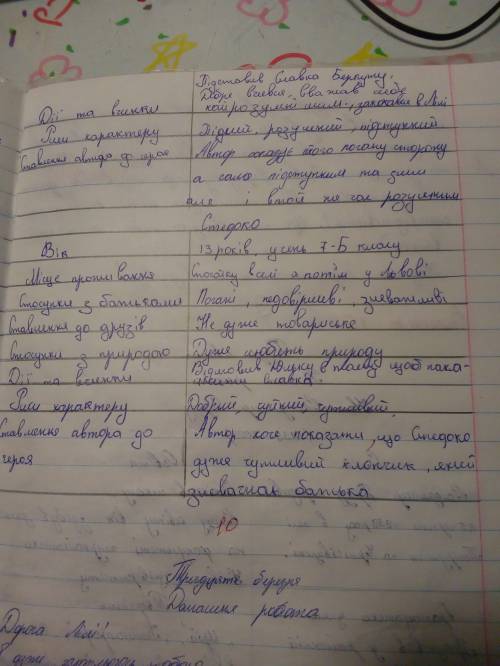 Підставив Славка Беркуту.
Добре вчився, вважав себе
Дії та вчинки найрозумнішим, закоханий в Лілі
Риси характеру Підлий, розумний, підступний
Ставлення автора до героя Автор показує його погану сторону
а саме підступним та злим
але і в той же час розумним
Стефко
Вік 13 років, учень 7-Б класу
Місце проживання Спочатку в селі а потім у Львові
Стосунки з батьками Погані, недовірливі, зневажливі
Ставлення до друзів Не дуже товариське
Стосунки з природою Дуже любить природу
Дії та вчинки Відмовив Юлку в плані щоб пока-
Славка.
Риси характеру Добрий, чуйний, чутливий
Ставлення автора до Автор хоче показати, що Стефко
героя дуже чутливий хлопчик, який
зневажає батька
10
Тридцяте березня
Домашня робота
Дорога Лілі!
дуже